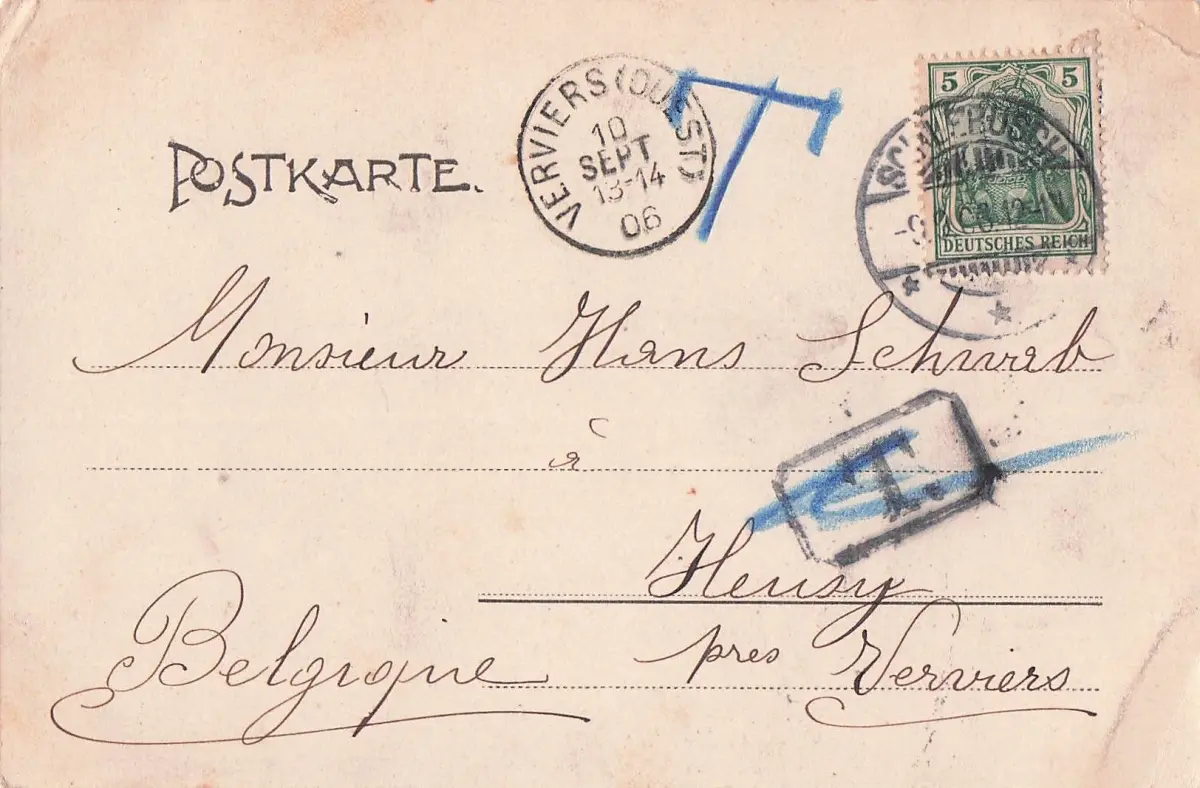 POSTKARTE.
VERVIERS (OUEST)
10
SEPT
13-14
06
T
5 5
DEUTSCHES REICH
Monsieur Hans Schwab
à
T.
Heusy
Belgique
près Verviers